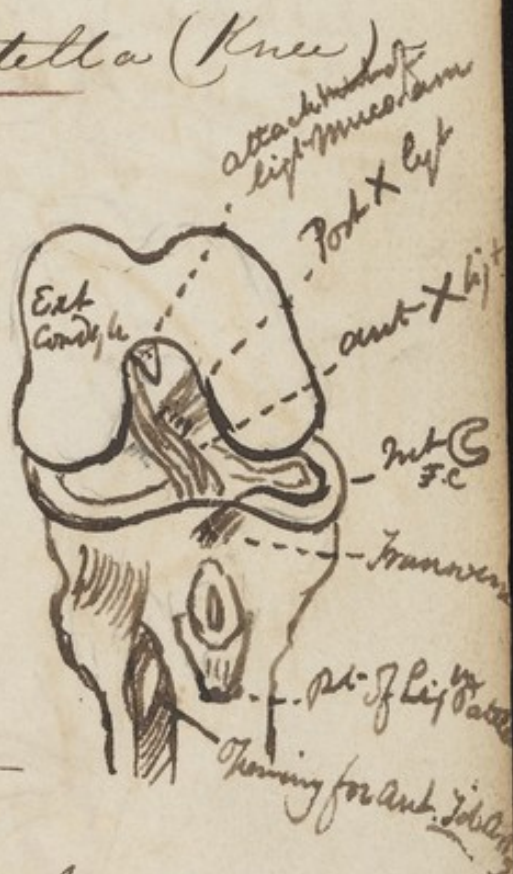 tella (Knee)
attachment of
ligt mucosum
Post X ligt
Ext
Condyle
ant X ligt
Int C
F.C
Transvers
pt of Lig m Patell
Opening for Ant. Tib An